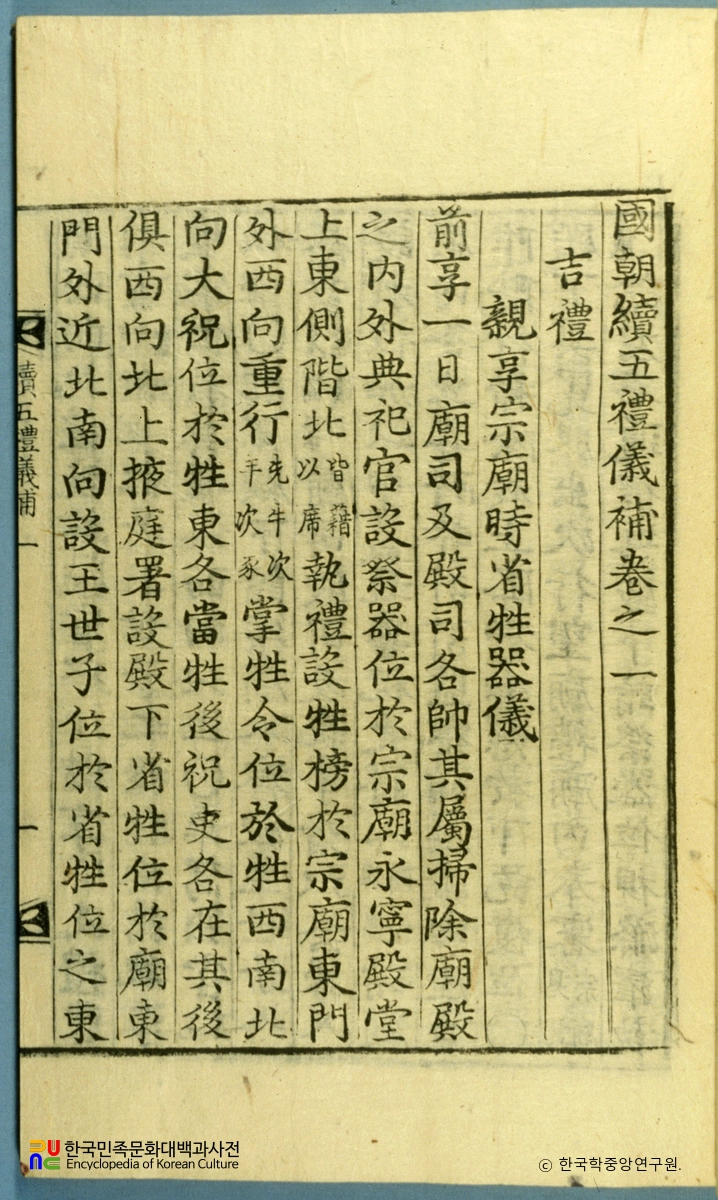 國朝續五禮儀補卷之一
吉禮
親享宗廟時省牲器儀
前享一日廟司及殿司各帥其屬掃除廟殿
之內外典祀官設祭器位於宗廟永寧殿堂
上東側階北皆藉以席執禮設牲榜於宗廟東門
外西向重行先牛次羊次豕掌牲令位於牲西南北
向大祝位於牲東各當牲後祝史各在其後
俱西向北上掖庭署設殿下省牲位於廟東
門外近北南向設王世子位於省牲位之東
續五禮儀補 一
一
한국민족문화대백과사전
Encyclopedia of Korean Culture
© 한국학중앙연구원.